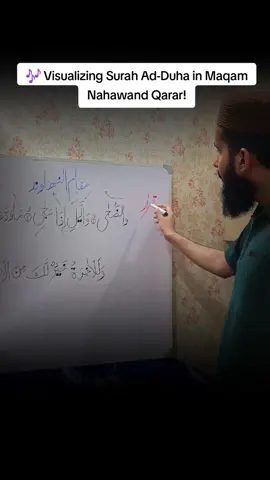 🎶 Visualizing Surah Ad-Duha in Maqam
Nahawand Qarar!
مقام النهاوند
قرار
والضحى ہ واليل إذا سجى ہ ما ود
وللآخرة خير لك من الأ